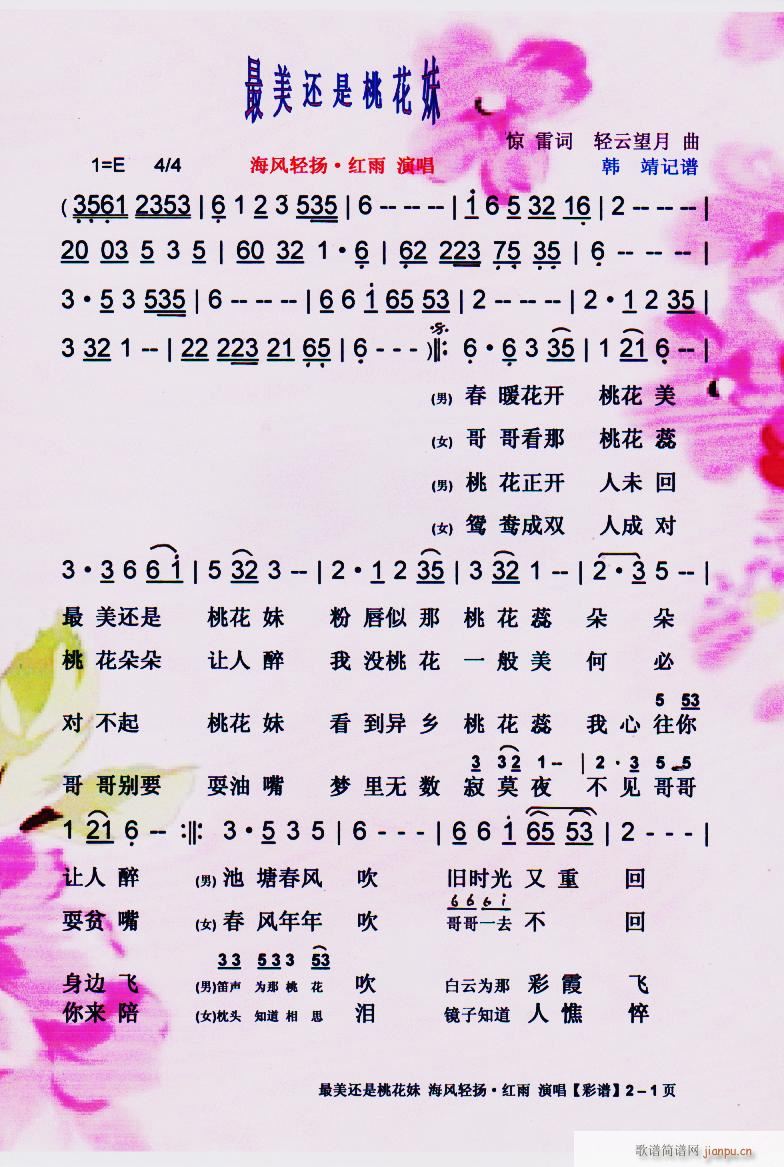 最美还是桃花妹
惊 雷词 轻云望月 曲
1=E 4/4 海风轻扬·红雨 演唱 韩 靖记谱
( 3561 2353 | 6 1 2 3 535 | 6 -- -- | i 6 5 32 16 | 2 -- -- |
20 03 5 3 5 | 60 32 1 · 6 | 62 223 75 35 | 6 -- -- |
3 · 5 3 535 | 6 -- -- | 6 6 i 65 53 | 2 -- -- | 2 · 1 2 35 |
3 32 1 -- | 22 223 21 65 | 6 - - - ) ‖: 6 · 6 3 35 | 1 21 6 -- |
(男) 春 暖花开 桃花 美
(女) 哥 哥看那 桃花 蕊
(男) 桃 花正开 人未 回
(女) 鸳 鸯成双 人成 对
3 · 3 6 6i | 5 32 3 -- | 2 · 1 2 35 | 3 32 1 -- | 2 · 3 5 -- |
最 美还是 桃花 妹 粉 唇似 那 桃 花 蕊 朵 朵
桃 花朵朵 让人 醉 我 没桃 花 一 般 美 何 必
5 53
对 不起 桃花 妹 看 到异 乡 桃 花 蕊 我 心 往你
3 32 1 -- | 2 · 3 5 5
哥 哥别要 耍油 嘴 梦 里无 数 寂 莫 夜 不 见 哥哥
1 21 6 -- :‖: 3 · 5 3 5 | 6 - - | 6 6 i 65 53 | 2 - - - |
让人 醉 (男) 池 塘春风 吹 旧时光 又 重 回
6 6 6 i
耍贫 嘴 (女) 春 风年年 吹 哥哥一去 不 回
33 533 53
身边 飞 (男)笛声 为那 桃 花 吹 白云为那 彩 霞 飞
你来 陪 (女)枕头 知道 相 思 泪 镜子知道 人 憔 悴
最美还是桃花妹 海风轻扬·红雨 演唱【彩谱】2－1页
歌谱简谱网
jianpu.cn